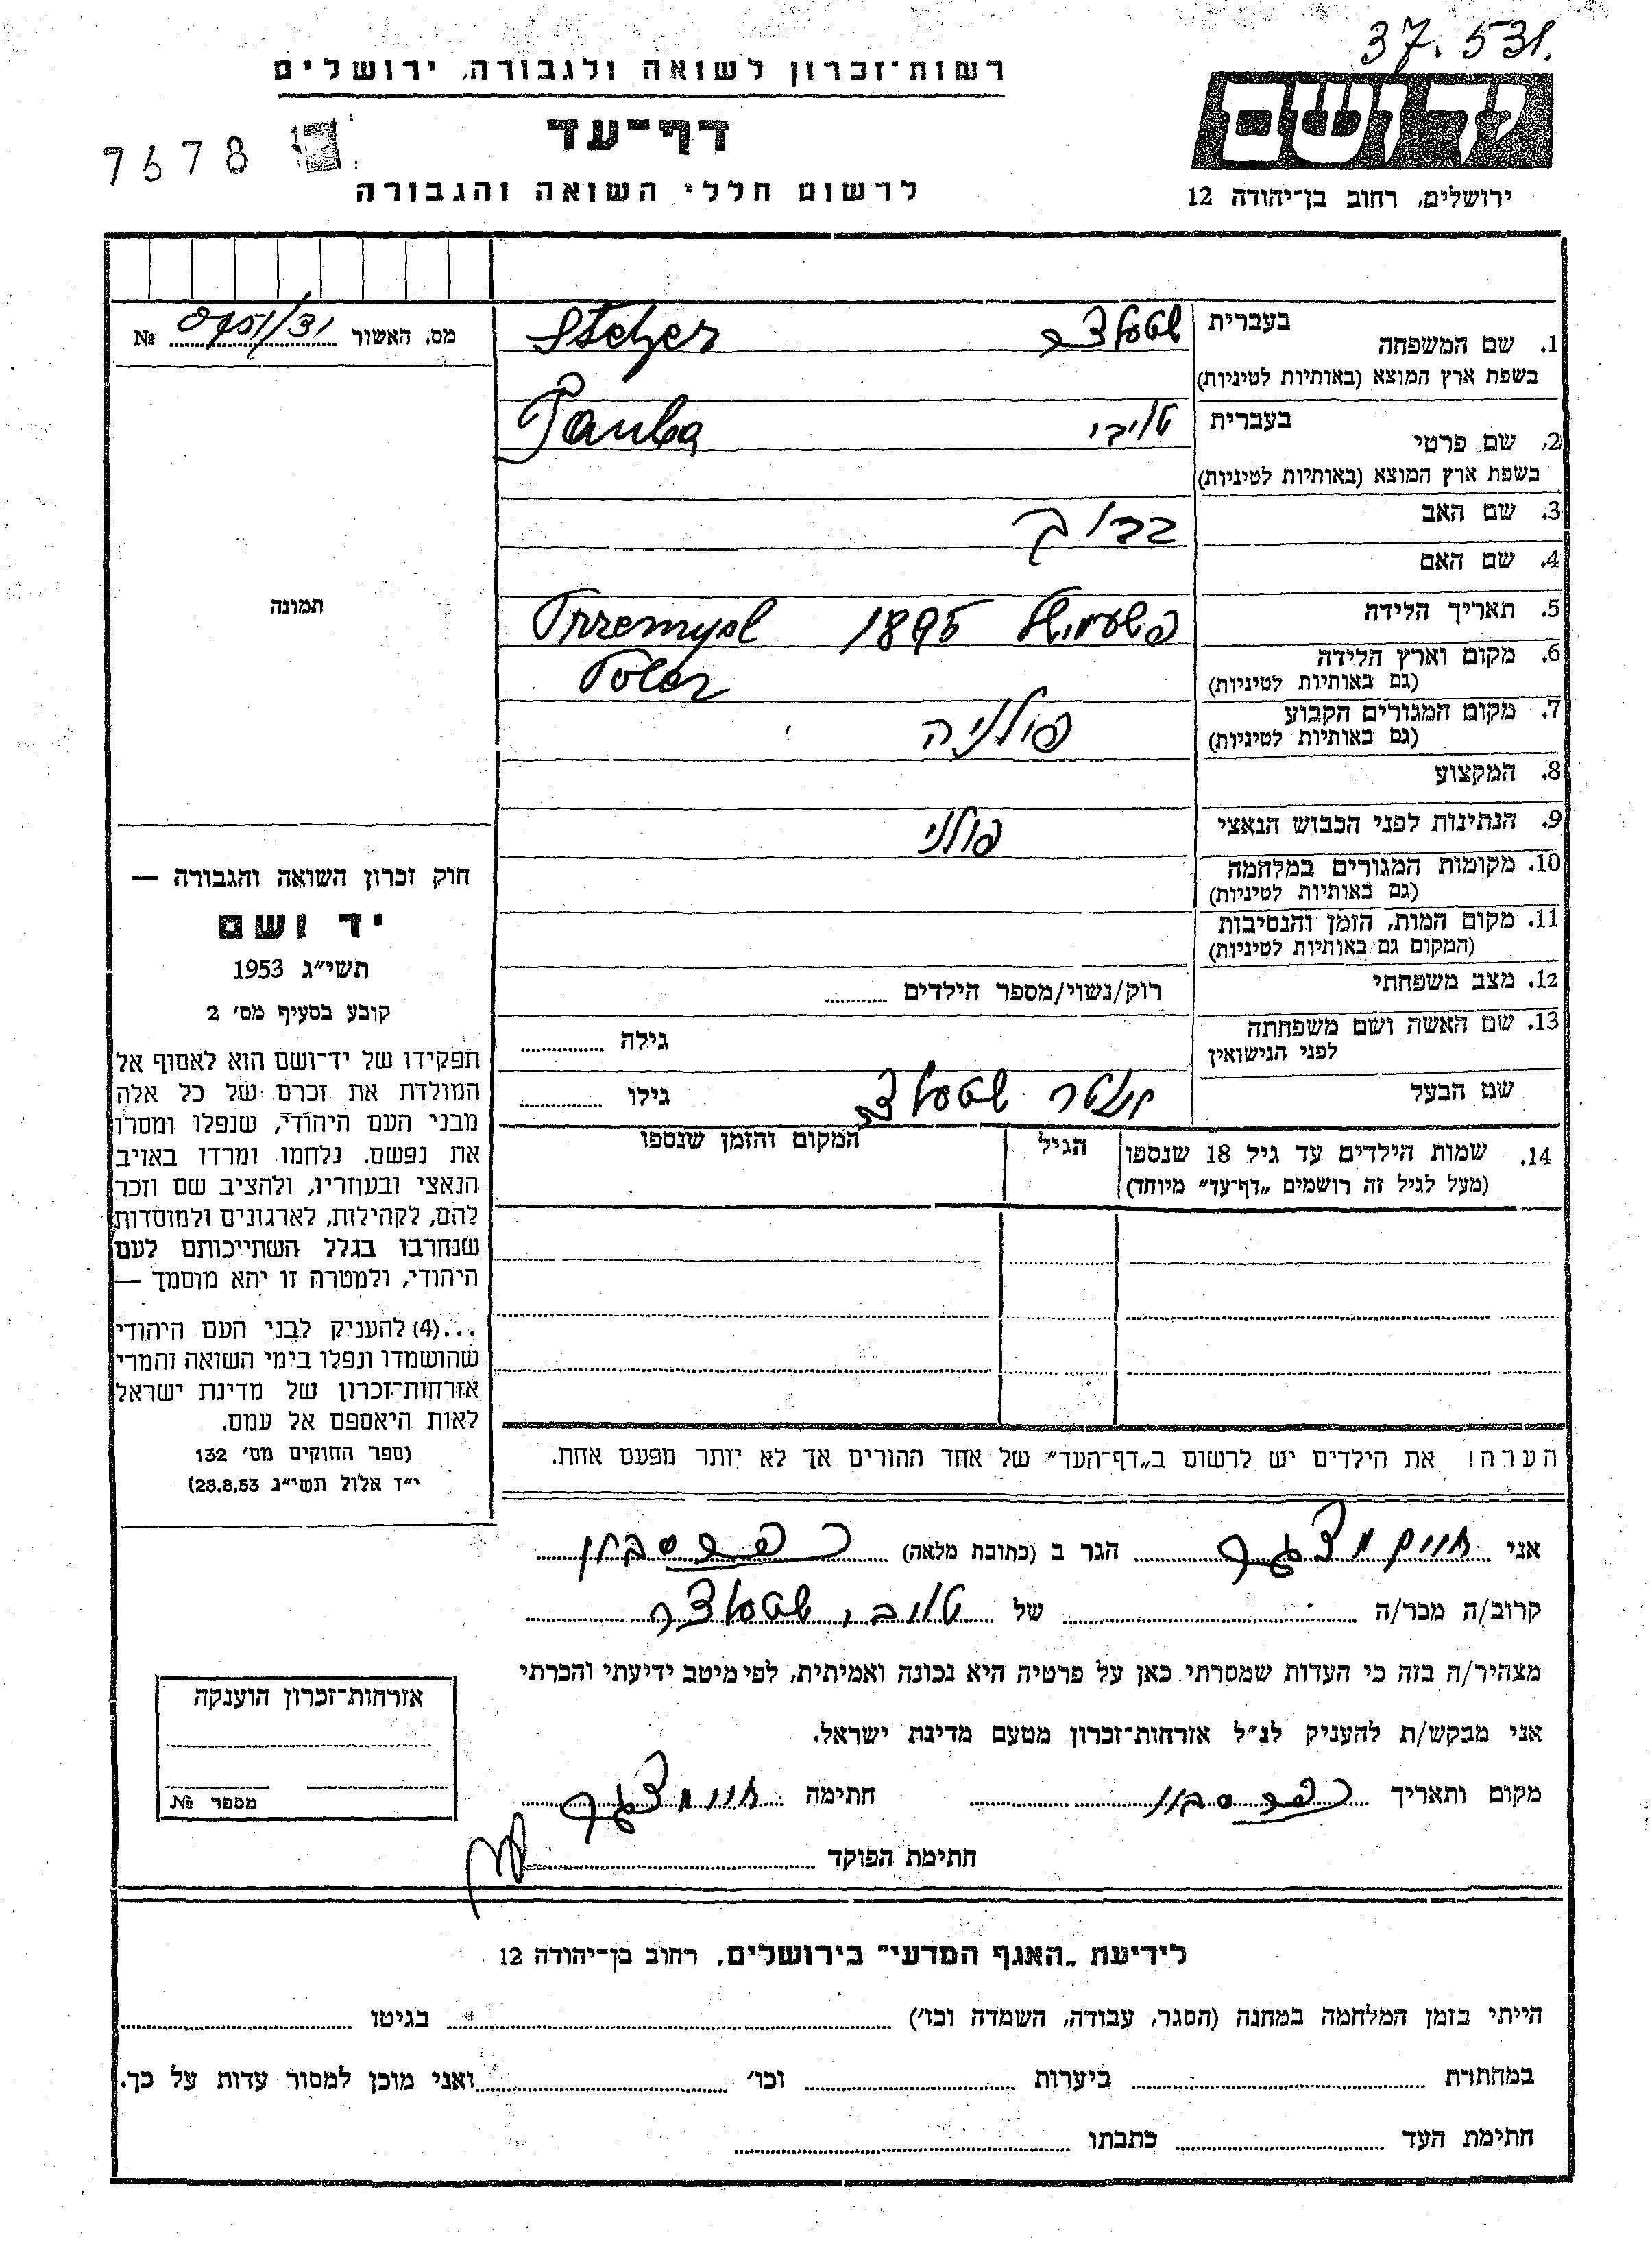 37.531.
רשות־זכרון לשואה ולגבורה, ירושלים
דף־עד
לרשום חללי השואה והגבורה
7678
יד ושם
ירושלים, רחוב בן־יהודה 12
מס. האשור 0451/31 №
1. שם המשפחה בעברית
Stelzer
בשפת ארץ המוצא (באותיות לטיניות)
2. שם פרטי בעברית טויבי
Tauba
בשפת ארץ המוצא (באותיות לטיניות)
3. שם האב ברוך
4. שם האם
5. תאריך הלידה 1895 Przemysl
6. מקום וארץ הלידה
(גם באותיות לטיניות) Polen
7. מקום המגורים הקבוע פולניה
(גם באותיות לטיניות)
8. המקצוע
9. הנתינות לפני הכבוש הנאצי פולני
10. מקומות המגורים במלחמה
(גם באותיות לטיניות)
11. מקום המות, הזמן והנסיבות
(המקום גם באותיות לטיניות)
12. מצב משפחתי רוק/נשוי/מספר הילדים
13. שם האשה ושם משפחתה
לפני הנישואין גילה
שם הבעל גילו
14. שמות הילדים עד גיל 18 שנספו הגיל המקום והזמן שנספו
(מעל לגיל זה רושמים „דף־עד" מיוחד)
תמונה
חוק זכרון השואה והגבורה —
יד ושם
תשי"ג 1953
קובע בסעיף מס׳ 2
תפקידו של יד־ושם הוא לאסוף אל
המולדת את זכרם של כל אלה
מבני העם היהודי, שנפלו ומסרו
את נפשם, נלחמו ומרדו באויב
הנאצי ובעוזריו, ולהציב שם וזכר
להם, לקהילות, לארגונים ולמוסדות
שנחרבו בגלל השתייכותם לעם
היהודי, ולמטרה זו יהא מוסמך —
...(4) להעניק לבני העם היהודי
שהושמדו ונפלו בימי השואה והמרי
אזרחות־זכרון של מדינת ישראל
לאות היאספם אל עמם.
(ספר החוקים מס׳ 132
י"ז אלול תשי"ג 28.8.53)
הערה! את הילדים יש לרשום ב„דף־העד" של אחד ההורים אך לא יותר מפעם אחת.
אני חיים הגר ב (כתובת מלאה) כפר סבא
קרוב/ה מכר/ה של טויבי שטעלצר
מצהיר/ה בזה כי העדות שמסרתי כאן על פרטיה היא נכונה ואמיתית, לפי מיטב ידיעתי והכרתי
אני מבקש/ת להעניק לנ"ל אזרחות־זכרון מטעם מדינת ישראל.
מקום ותאריך כפר סבא חתימה
חתימת הפוקד
אזרחות־זכרון הוענקה
מספר №
לידיעת „האגף המדעי" בירושלים, רחוב בן־יהודה 12
הייתי בזמן המלחמה במחנה (הסגר, עבודה, השמדה וכו׳) בגיטו
במחתרת ביערות וכו׳ ואני מוכן למסור עדות על כך.
חתימת העד כתבתו